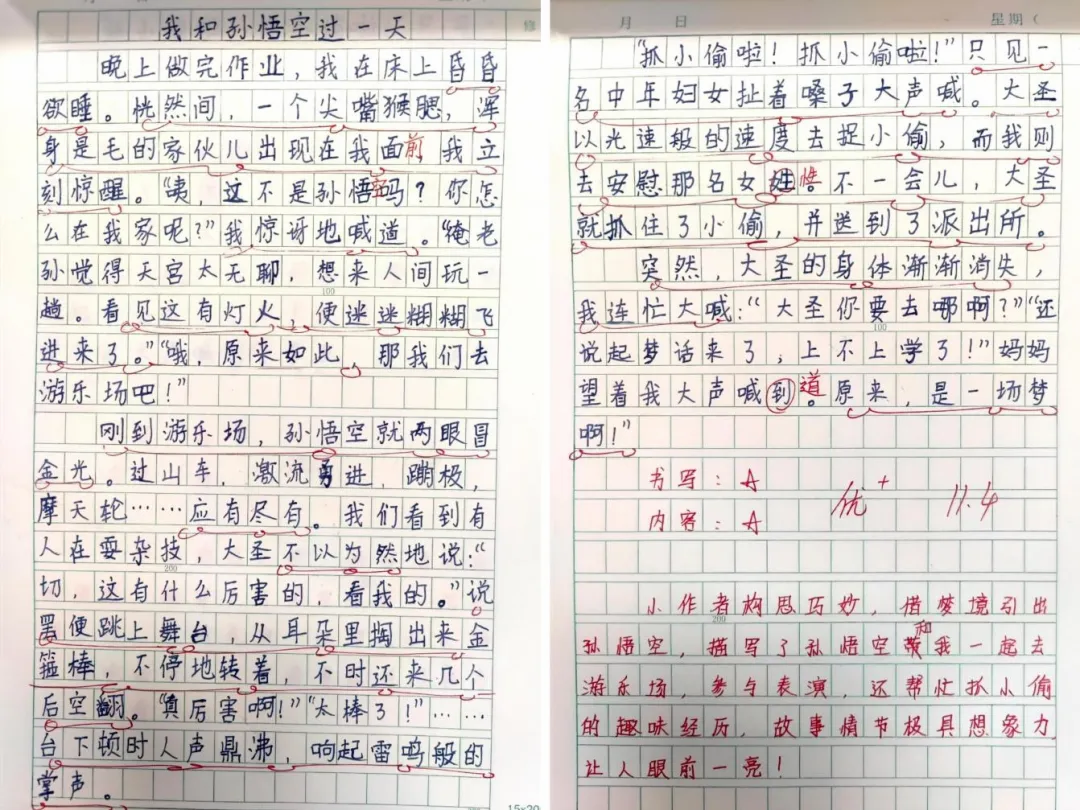 我和孙悟空过一天
晚上做完作业，我在床上昏昏
欲睡。恍然间，一个尖嘴猴腮，浑
身是毛的家伙儿出现在我面前，我立
刻惊醒。“咦，这不是孙悟空吗？你怎
么在我家呢？”我惊讶地喊道。“俺老
孙觉得天宫太无聊，想来人间玩一
趟。看见这有灯火，便迷迷糊糊飞
进来了。”“哦，原来如此，那我们去
游乐场吧！”
刚到游乐场，孙悟空就两眼冒
金光。过山车，激流勇进，蹦极，
摩天轮……应有尽有。我们看到有
人在耍杂技，大圣不以为然地说：“
200
切，这有什么厉害的，看我的。”说
罢便跳上舞台，从耳朵里掏出来金
箍棒，不停地转着，不时还来几个
后空翻。“真厉害啊！”“太棒了！”……
台下顿时人声鼎沸，响起雷鸣般的
掌声。
15×20
月 日 星期（
“抓小偷啦！抓小偷啦！”只见一
名中年妇女扯着嗓子大声喊。大圣
以光速般的速度去捉小偷，而我则
去安慰那名女性。不一会儿，大圣
就抓住了小偷，并送到了派出所。
突然，大圣的身体渐渐消失，
我连忙大喊：“大圣你要去哪啊？”“还
100
说起梦话来了，上不上学了！”妈妈
望着我大声喊到道。原来，是一场梦
啊！”
书写：☆
内容：☆
优+ 11.4
200
小作者构思巧妙，借梦境引出
孙悟空，描写了孙悟空和我一起去
游乐场，参与表演，还帮忙抓小偷
的趣味经历，故事情节极具想象力，
让人眼前一亮！